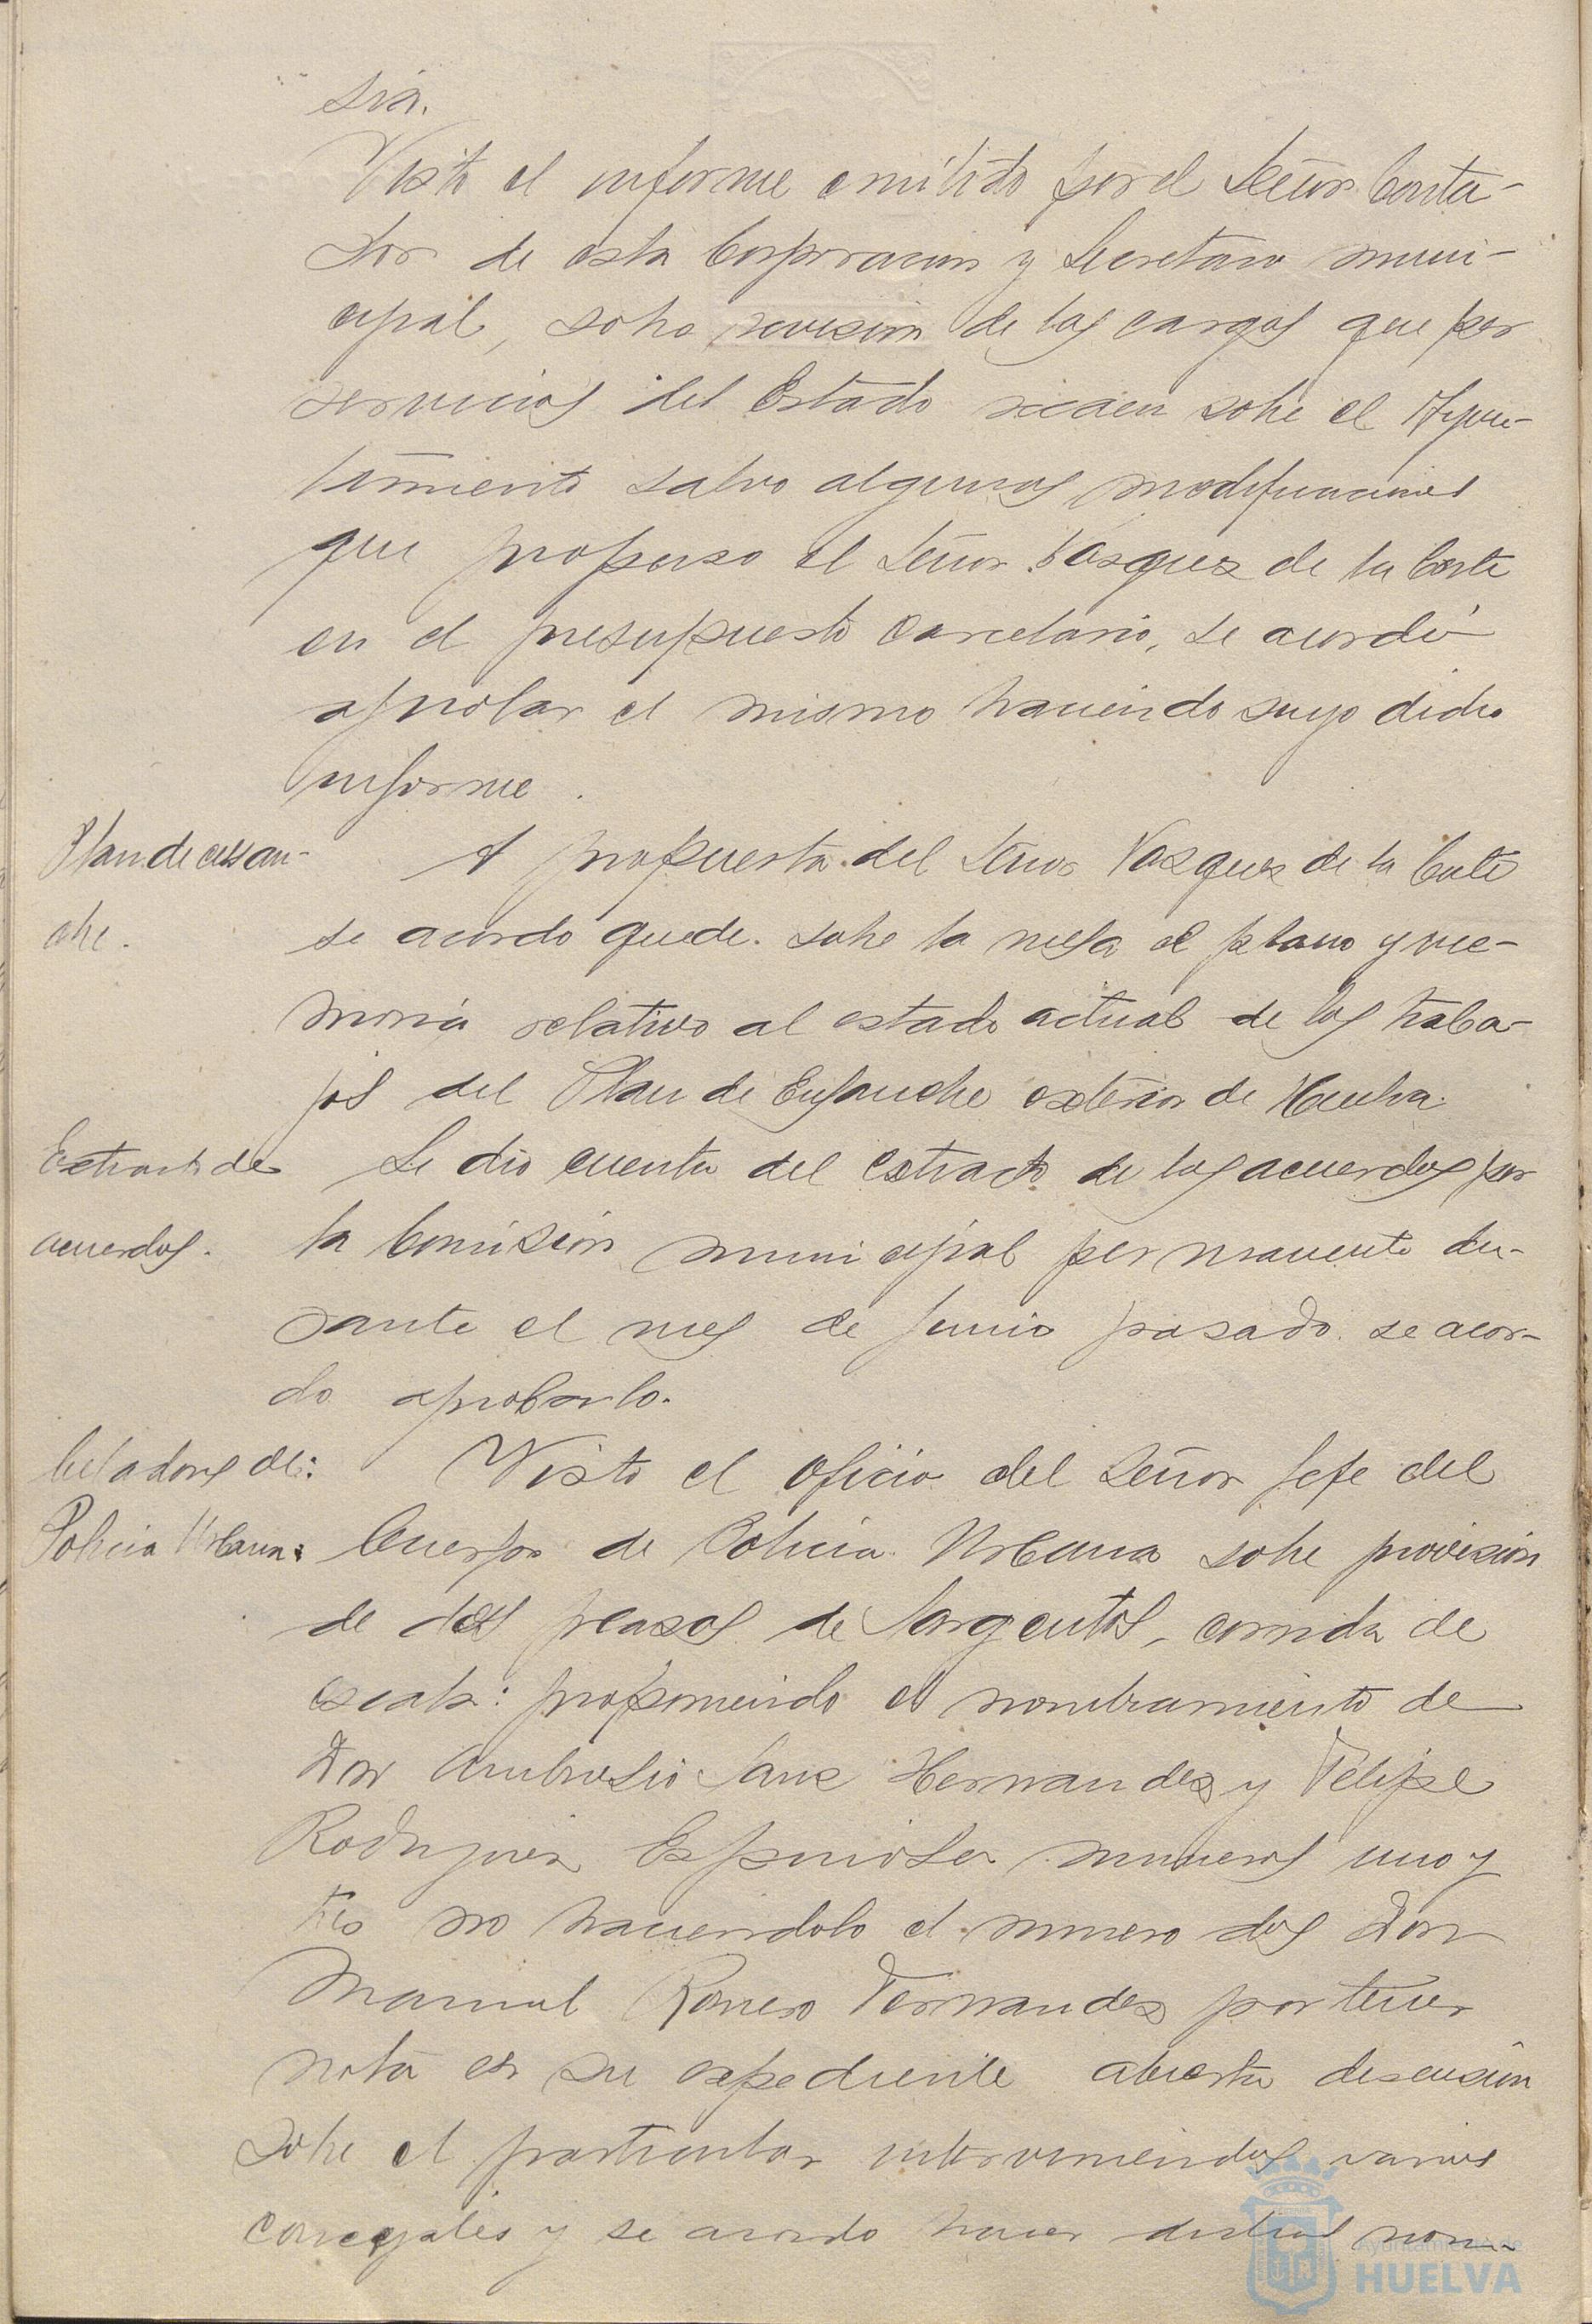 sia.
Visto el informe emitido por el Señor Conta-
dor de esta Corporacion y Secretario muni-
cipal, sobre revision de los cargos que por
servicios del Estado recaen sobre el Ayun-
tamiento salvo algunas modificaciones
que propuso el Señor Vasquez de la Corte
en el presupuesto carcelario, se acordó
aprobar el mismo haciendo suyo dicho
informe.
Plan de ensan-
che.
A propuesta del Señor Vasquez de la Corte
se acordo quede sobre la mesa el plano y me-
moria relativo al estado actual de los traba-
jos del Plan de Ensanche exterior de Huelva.
Extracto de
acuerdos.
Se dio cuenta del extracto de los acuerdos por
la Comisión municipal permanente du-
rante el mes de Junio pasado se acor-
do aprobarlo.
Celadores de
Policia Urbana:
Visto el oficio del Señor Jefe del
Cuerpo de Policia Urbana sobre provision
de dos plasas de Sargentos, corrida de
escala: proponiendo el nombramiento de
Don Ambrosio Sanz Hernandez y Felipe
Rodriguez Espinosa numeros uno y
tres no haciendolo el numero dos Don
Manuel Romero Fernandez por tener
nota en su expediente abierta discusión
sobre el particular interviniendo varios
concejales y se acordo hacer dichos nom-
Ayuntamiento de
HUELVA